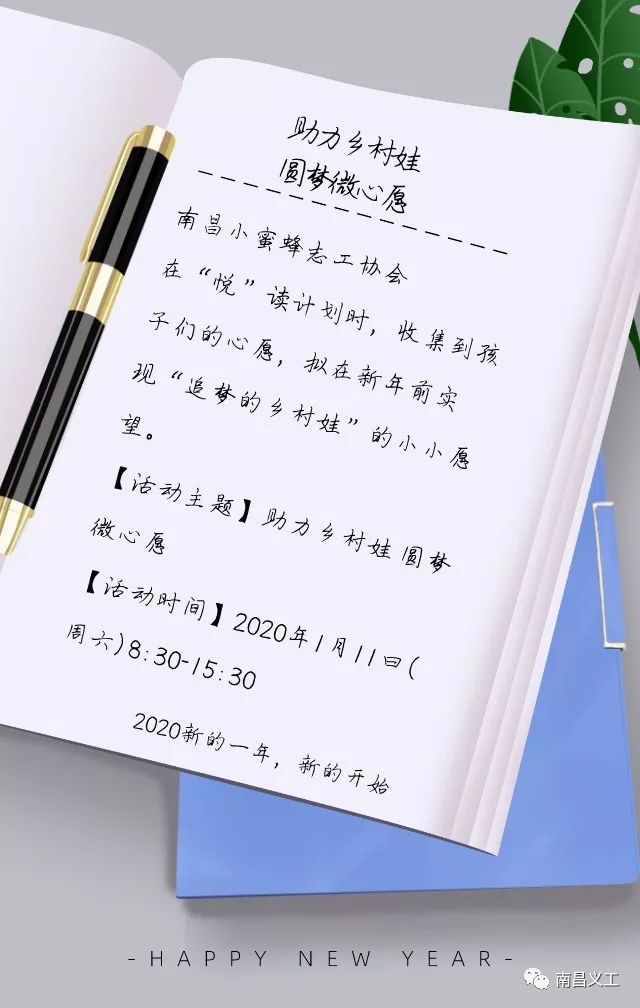 助力乡村娃
圆梦微心愿
南昌小蜜蜂志工协会
在“悦”读计划时，收集到孩
子们的心愿，拟在新年前实
现“追梦的乡村娃”的小小愿
望。
【活动主题】助力乡村娃 圆梦
微心愿
【活动时间】2020年1月11日(
周六)8:30-15:30
2020新的一年，新的开始
-HAPPY NEW YEAR-
南昌义工